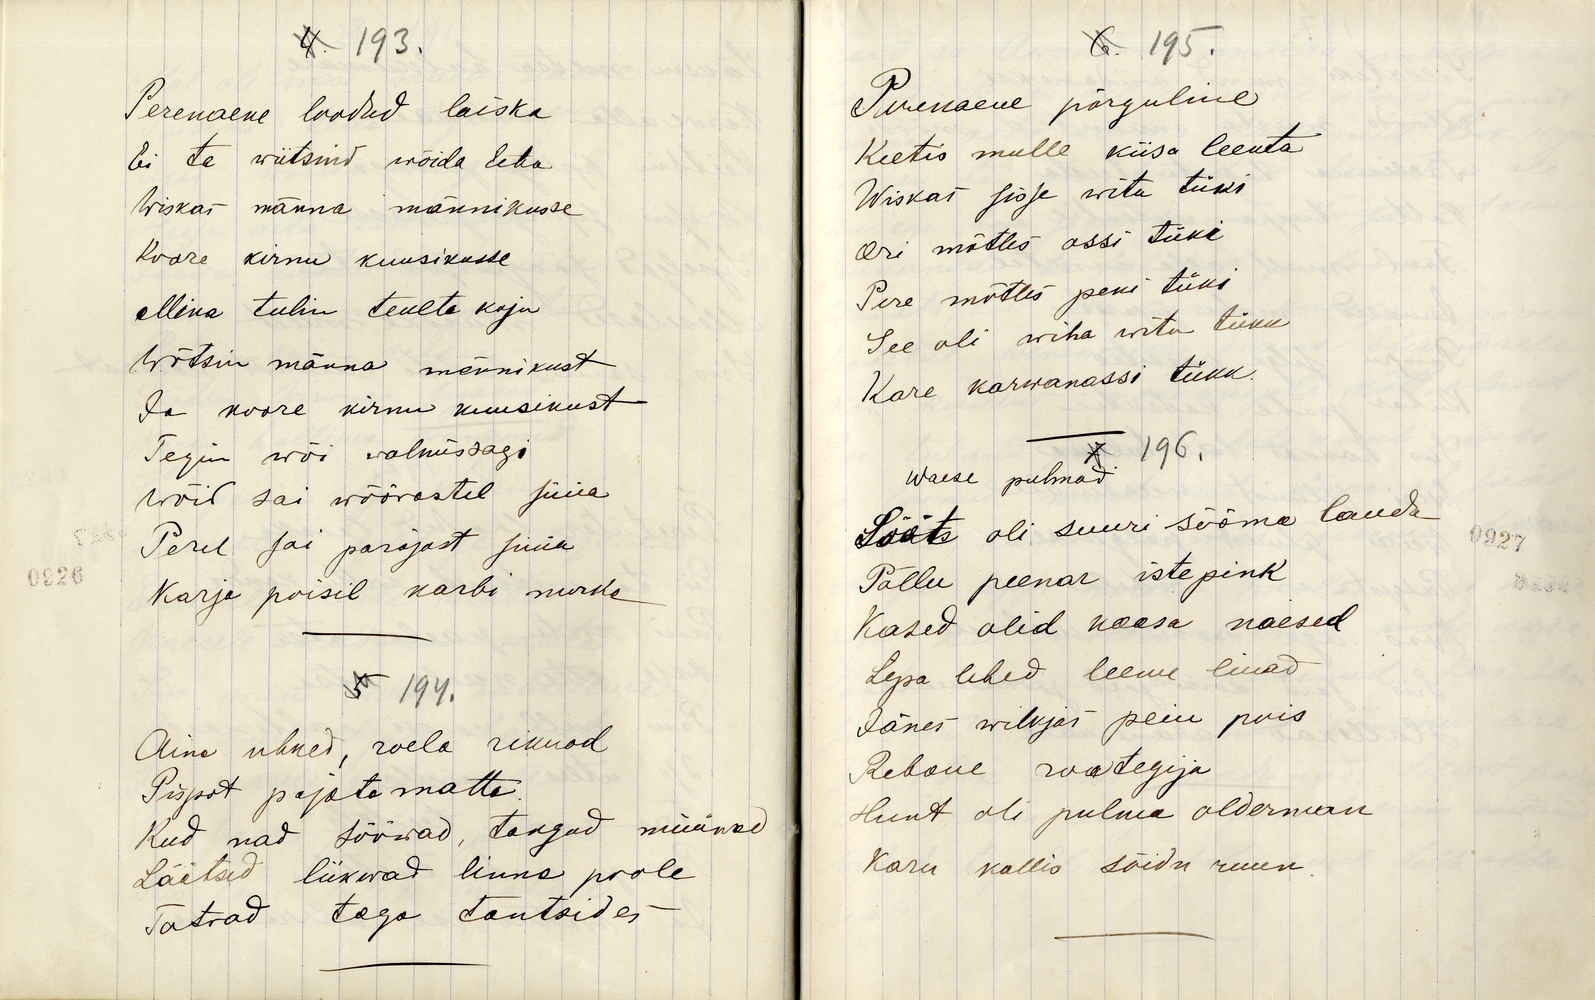 4. 193.
Perenaene loodud laiska
Ei ta wiitsind wõida teha
Wiskas männa männikusse
Koore kirnu kuusikusse
Mina tulin teulta koju
Wõtsin männa männikust
Ja koore kirnu kuusikust
Tegin wõi walmissagi
Wõid sai wõõrastel süüa
Perel sai parajast süüa
Karja poisil karbi nurka
5 194.
Aina uhked, roela rikuad
Pispot pajata matta.
Kud nad sööwad, tangud müünad
Läätsed liikwad linna poole
Tatrad taga tantsides
0926
6. 195.
Perenaene põrguline
Keetis mulle kiisa leenta
Wiskas sisse witu tüki
Ori mõtles assi tüki
Pere mõtles peki tüki
See oli wiha witu tükk
Kare karwanassi tükk.
7 196.
Waese pulmad
Sööts oli suuri sööma lauda
Põllu peenar istepink
Kased olid kaasa naesed
Lepa lehed leeme linad
Jänes wilujas peiu pois
Rebane roategija
Hunt oli pulma olderman
Karu kallis sõidu ruun.
0927